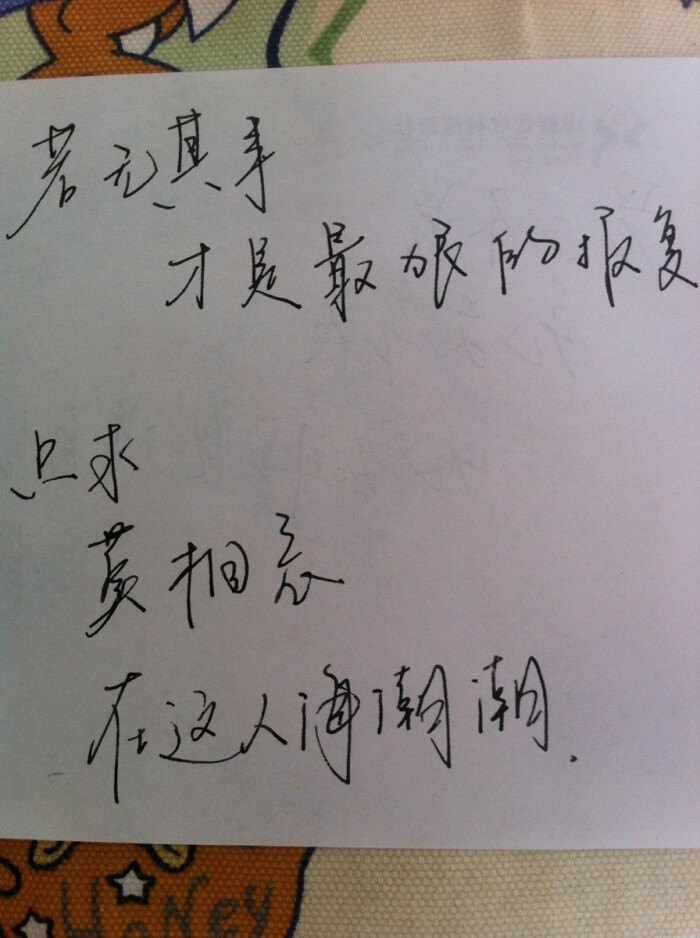 若无其事
才是最狠的报复
只求
莫相忘
在这人海潮潮.
HONey